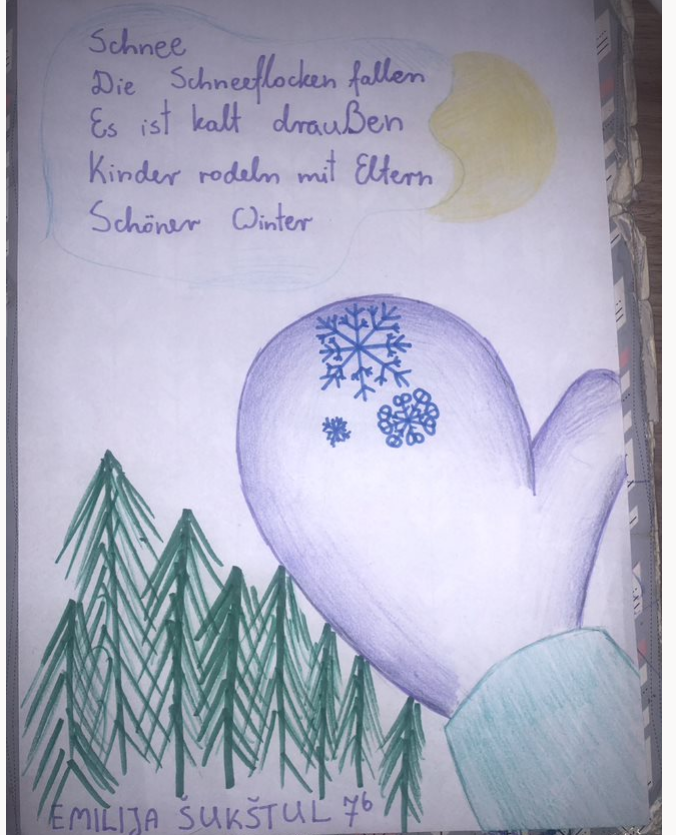 Schnee
Die Schneeflocken fallen
Es ist kalt draußen
Kinder rodeln mit Eltern
Schöner Winter
EMILIJA ŠUKŠTUL 7b